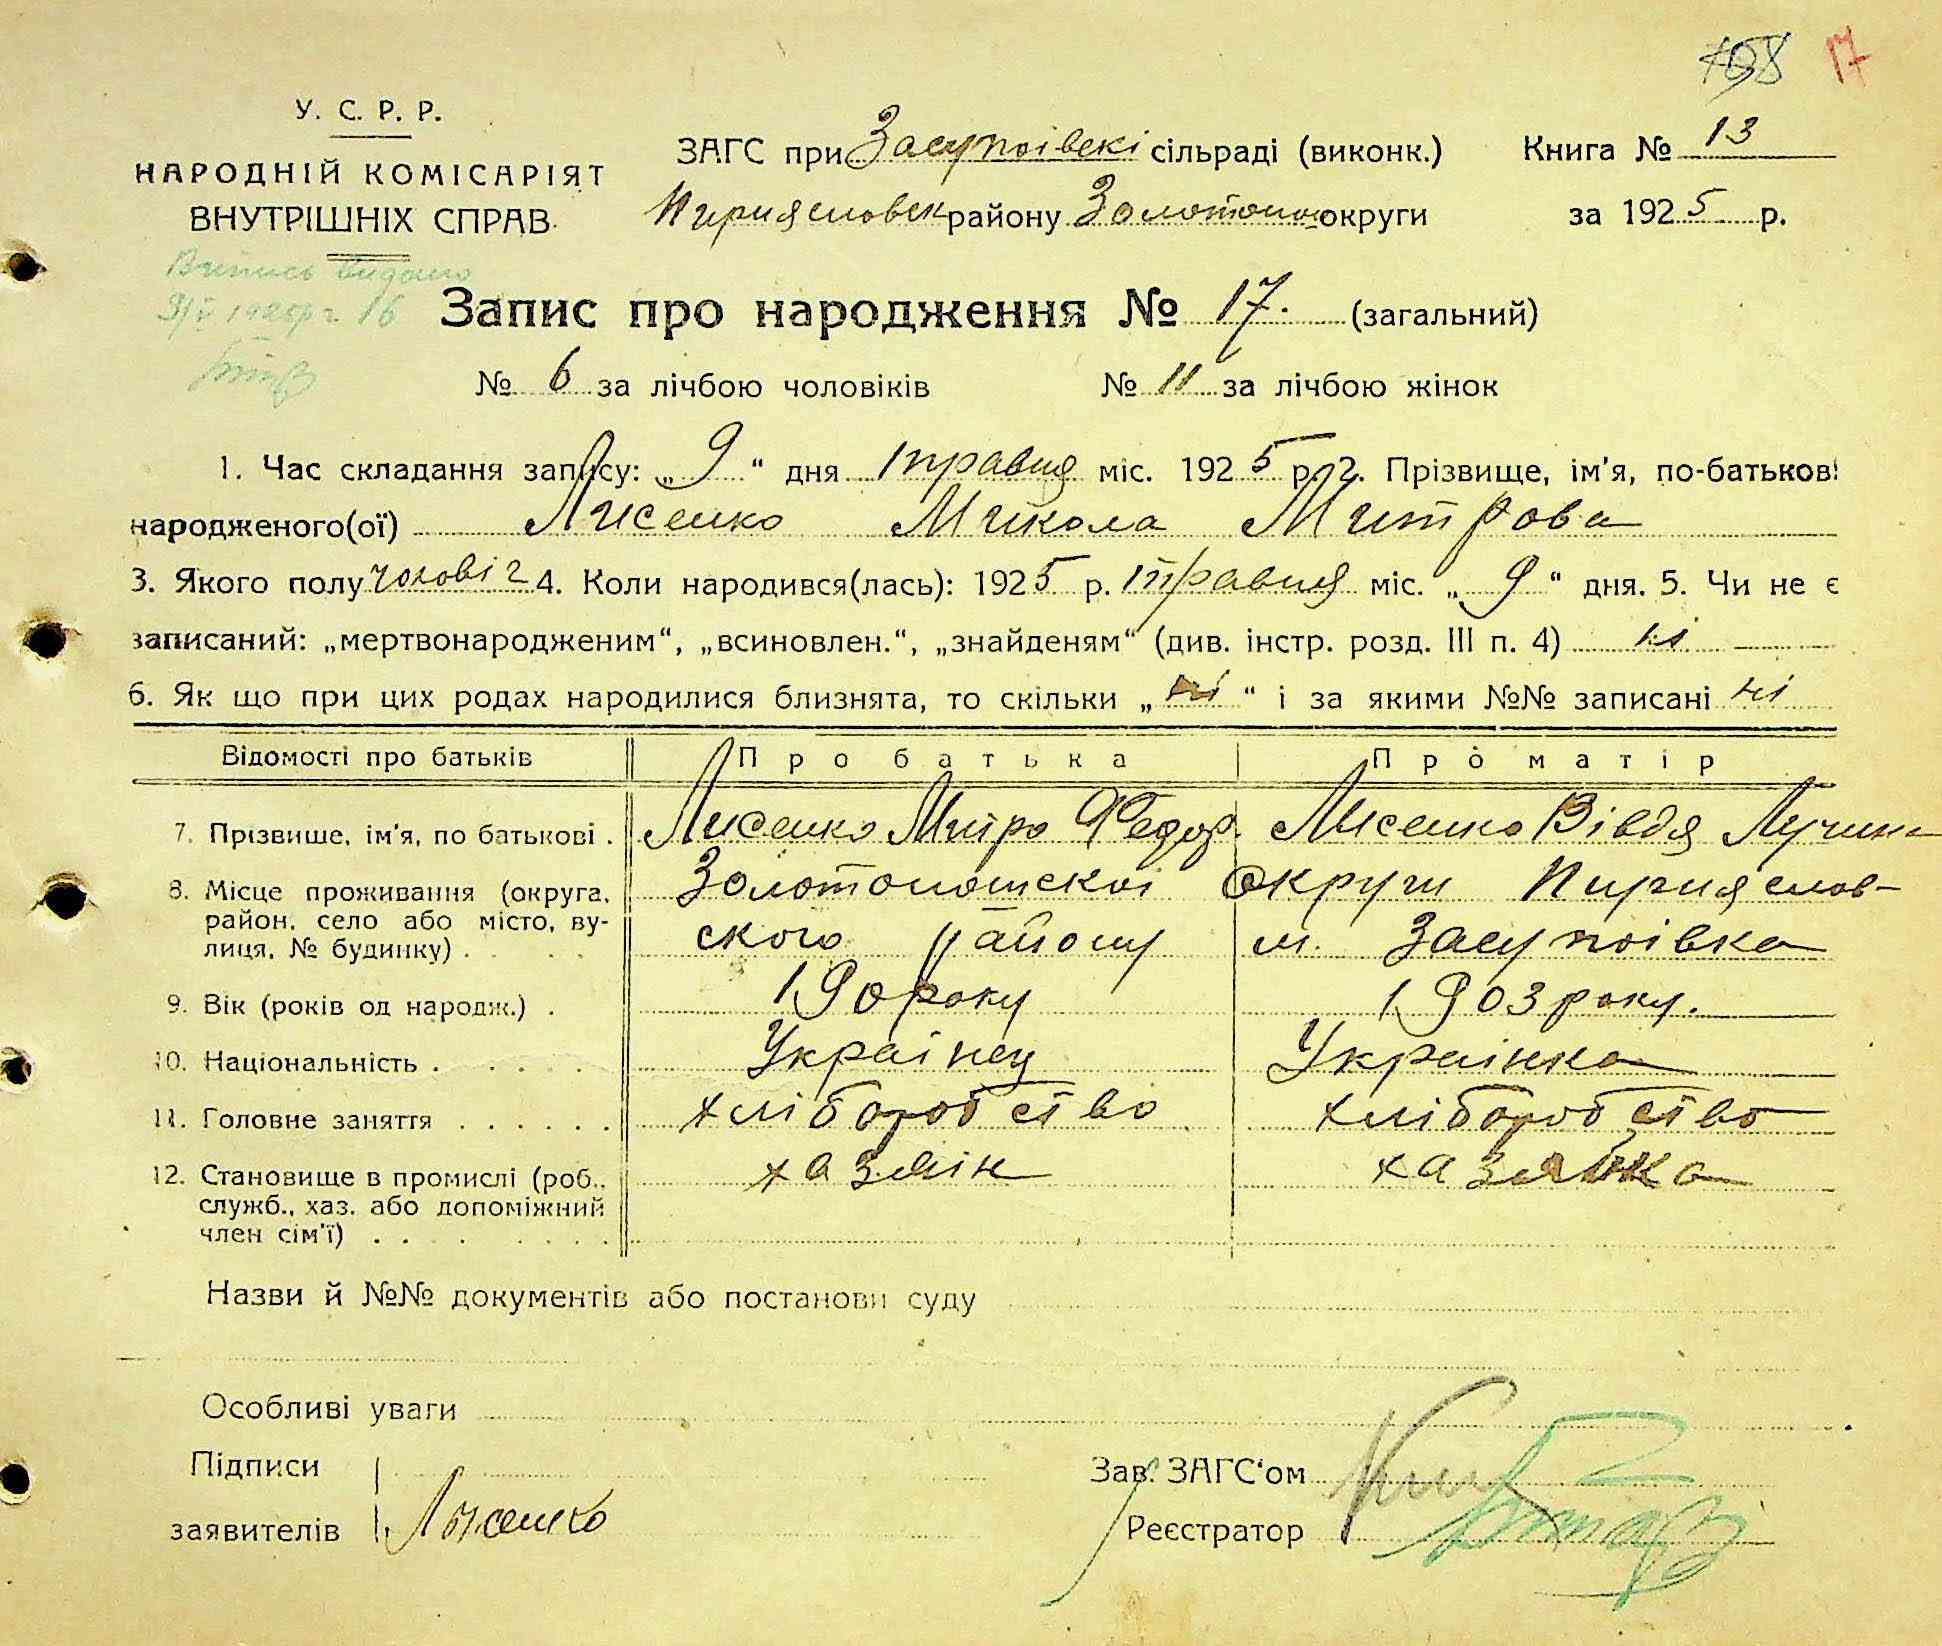 17
У. С. Р. Р.
НАРОДНІЙ КОМІСАРІЯТ
ВНУТРІШНІХ СПРАВ.
ЗАГС при Засупоівскі сільраді (виконк.) Книга № 13
Пириясловск району Золотонош округи за 1925 р.
Випись видано
Запис про народження № 17. (загальний)
№ 6 за лічбою чоловіків № 11 за лічбою жінок
1. Час складання запису: „9“ дня травня міс. 1925 р. 2. Прізвище, ім'я, по-батькові
народженого(ої) Лисенко Микола Митрова
3. Якого полу чоловіч 4. Коли народився(лась): 1925 р. травня міс. „9“ дня. 5. Чи не є
записаний: „мертвонародженим“, „всиновлен.“, „знайденям“ (див. інстр. розд. III п. 4) ні
6. Як що при цих родах народилися близнята, то скільки „ні“ і за якими №№ записані ні
Відомості про батьків Про батька Про матір
7. Прізвище, ім'я, по батькові . Лисенко Митро Федор. Лисенко Вівдя
8. Місце проживання (округа, Золотоношскоі округи Пирияслов-
район, село або місто, ву-
лиця, № будинку) . ского району м. Засупоівка
9. Вік (років од народж.) . 190 року 1903 року.
10. Національність . Украінец Украінка
11. Головне заняття . хліборобство хліборобство
12. Становище в промислі (роб., хазяін хазяйка
служб., хаз. або допоміжний
член сім'ї) .
Назви й №№ документів або постанови суду
Особливі уваги
Підписи
заявителів Лысенко
Зав. ЗАГС'ом
Реєстратор